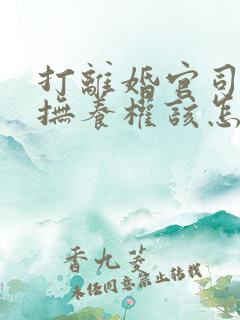 打離婚官司
撫養權該怎
香九菱
未經同意禁止轉載